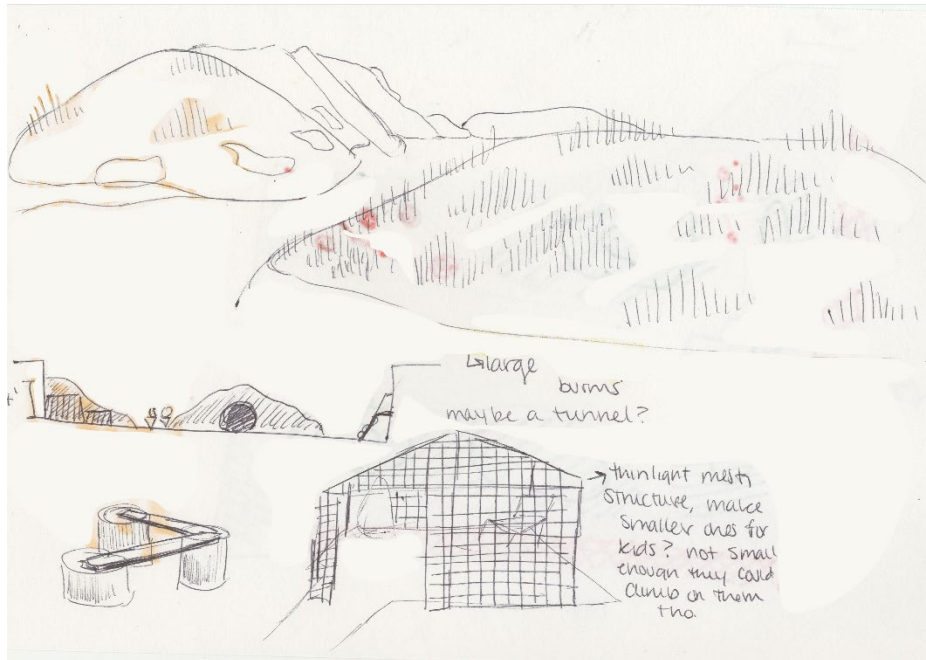 ↳large
burms
maybe a tunnel?
→ thin light mesh
structure, make
smaller ones for
kids? not small
enough they could
climb on them
tho.